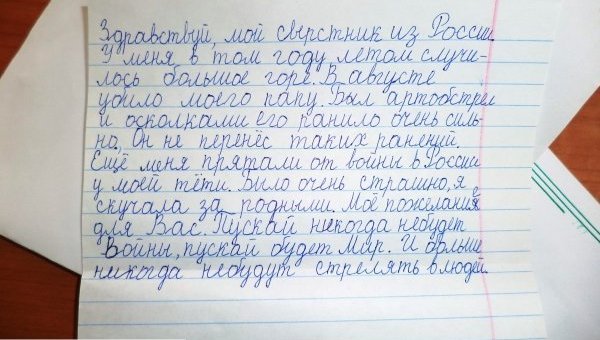 Здравствуй, мой сверстник из России.
У меня в том году летом случи-
лось большое горе. В августе
убило моего папу. Был артобстрел
и осколками его ранило очень силь-
но. Он не перенёс таких ранений.
Ещё меня прятали от войны в России
у моей тёти. Было очень страшно, я
скучала за родными. Моё пожелание
для Вас. Пускай никогда небудет
Войны, пускай будет Мир. И больше
никогда небудут стрелять в людей.